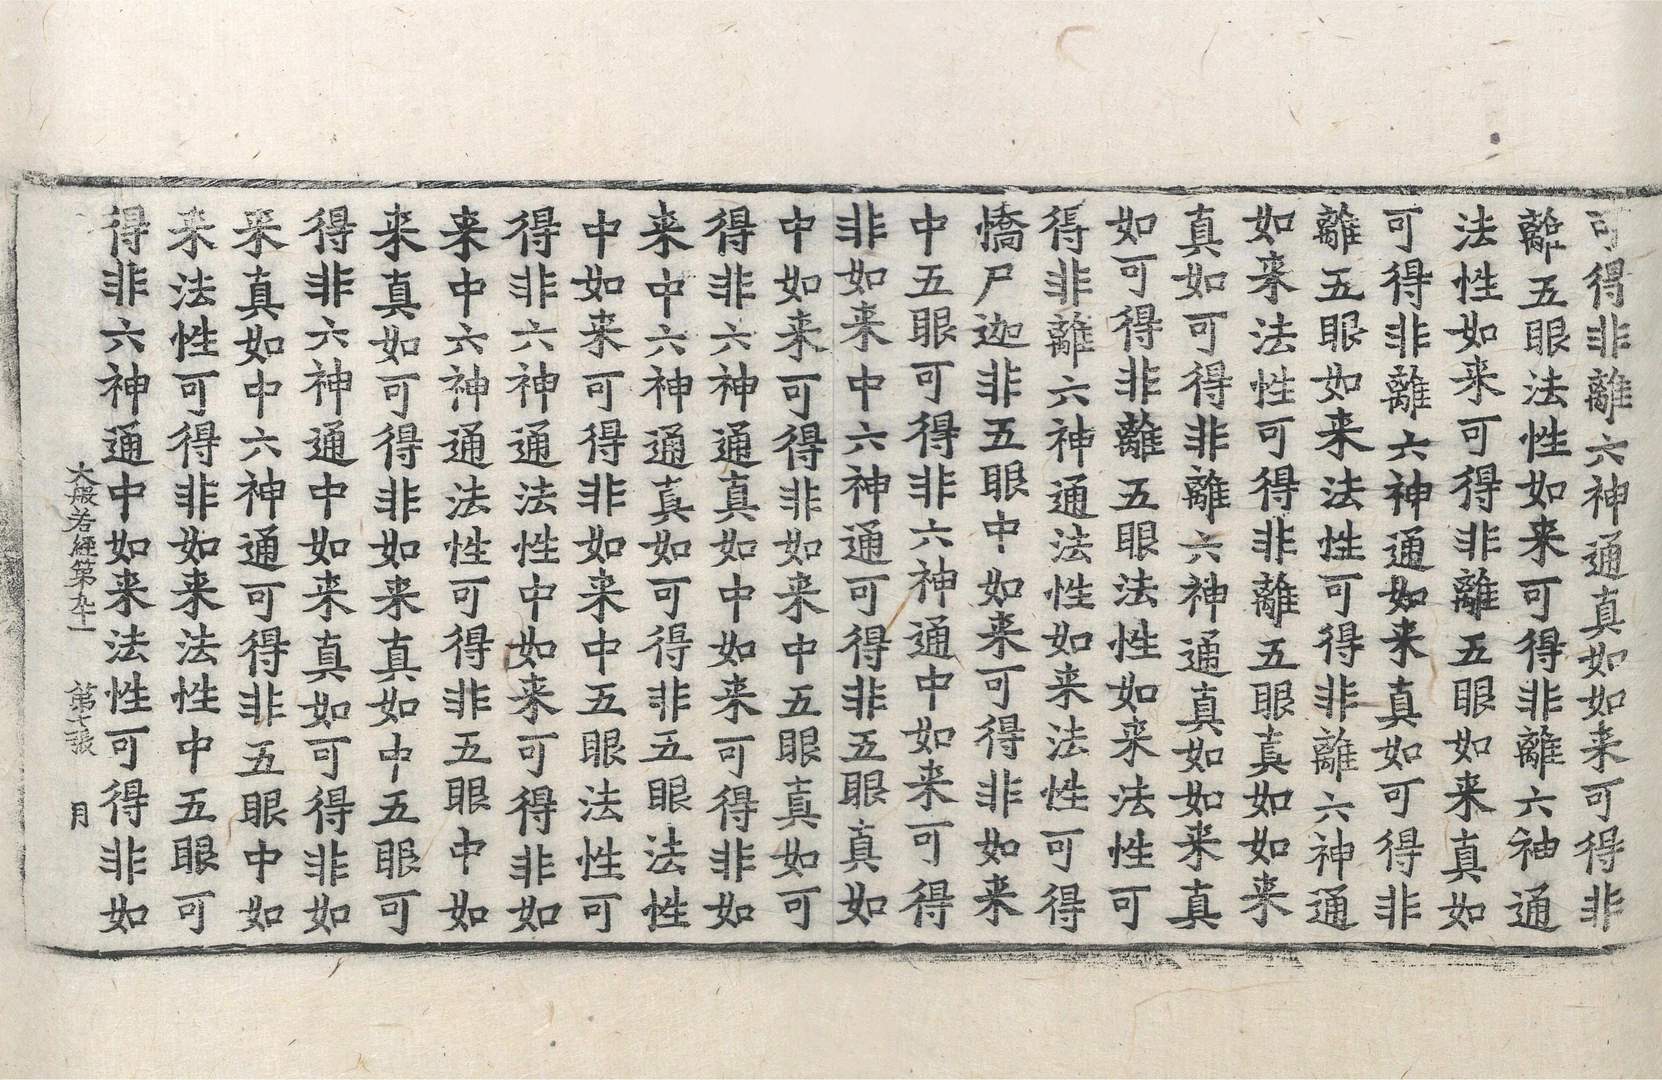 可得非離六神通真如如来可得非
離五眼法性如来可得非離六神通
法性如来可得非離五眼如来真如
可得非離六神通如来真如可得非
離五眼如来法性可得非離六神通
如来法性可得非離五眼真如如来
真如可得非離六神通真如如来真
如可得非離五眼法性如来法性可
得非離六神通法性如来法性可得
憍尸迦非五眼中如来可得非如来
中五眼可得非六神通中如来可得
非如来中六神通可得非五眼真如
中如来可得非如来中五眼真如可
得非六神通真如中如来可得非如
来中六神通真如可得非五眼法性
中如来可得非如来中五眼法性可
得非六神通法性中如来可得非如
来中六神通法性可得非五眼中如
来真如可得非如来真如中五眼可
得非六神通中如来真如可得非如
来真如中六神通可得非五眼中如
来法性可得非如来法性中五眼可
得非六神通中如来法性可得非如
大般若經第九十一 第七張 月